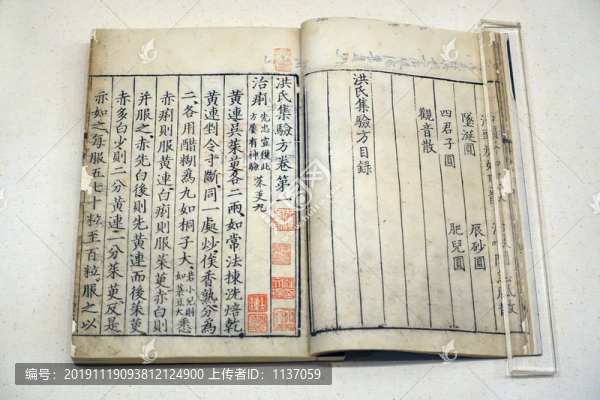 墜涎圓 辰砂圓
四君子圓 肥兒圓
觀音散
洪氏集驗方目錄
洪氏集驗方卷第
治痢 先忠宣獲此方屢有神驗 茱萸丸
黃連吳茱萸各二兩如常法揀洗焙乾
黃連剉令寸斷同一處炒俟香熟分為
二各用醋糊為丸如桐子大若小兒則如菉豆大悉
赤痢則服黃連白痢則服茱萸赤白則
并服之赤先白後則先黃連而後茱萸
赤多白少則二分黃連一分茱萸反是
亦如之每服五七十粒至百粒服之以
编号：20191119093812124900 上传者ID：1137059